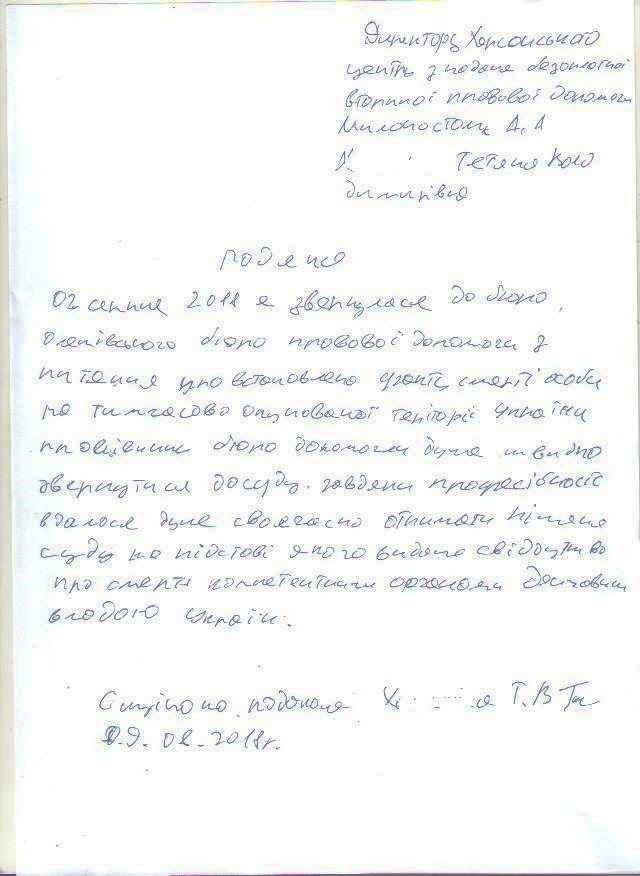 Директору Херсонського
центру з надане безоплотної
вторинної правової допомоги
Милопостому А. Л
Х Тетяна Воло
димирівна
Подяка
02 серпня 2018 я звернулася до бюро
Олешківського бюро правової допомоги з
питання про встановлено факту смерті особи
на тимчасово окупованої теріторії України
працівники бюро допомогли дуже швидко
звернутися до суду. завдяки професійності
вдалося дуже своєчасно отримати рішення
суду на підстові якого видано свідоцтво
про смерть компетентними органами
владою України.
З щирою подякою Х я Т. В
09. 08. 2018г.